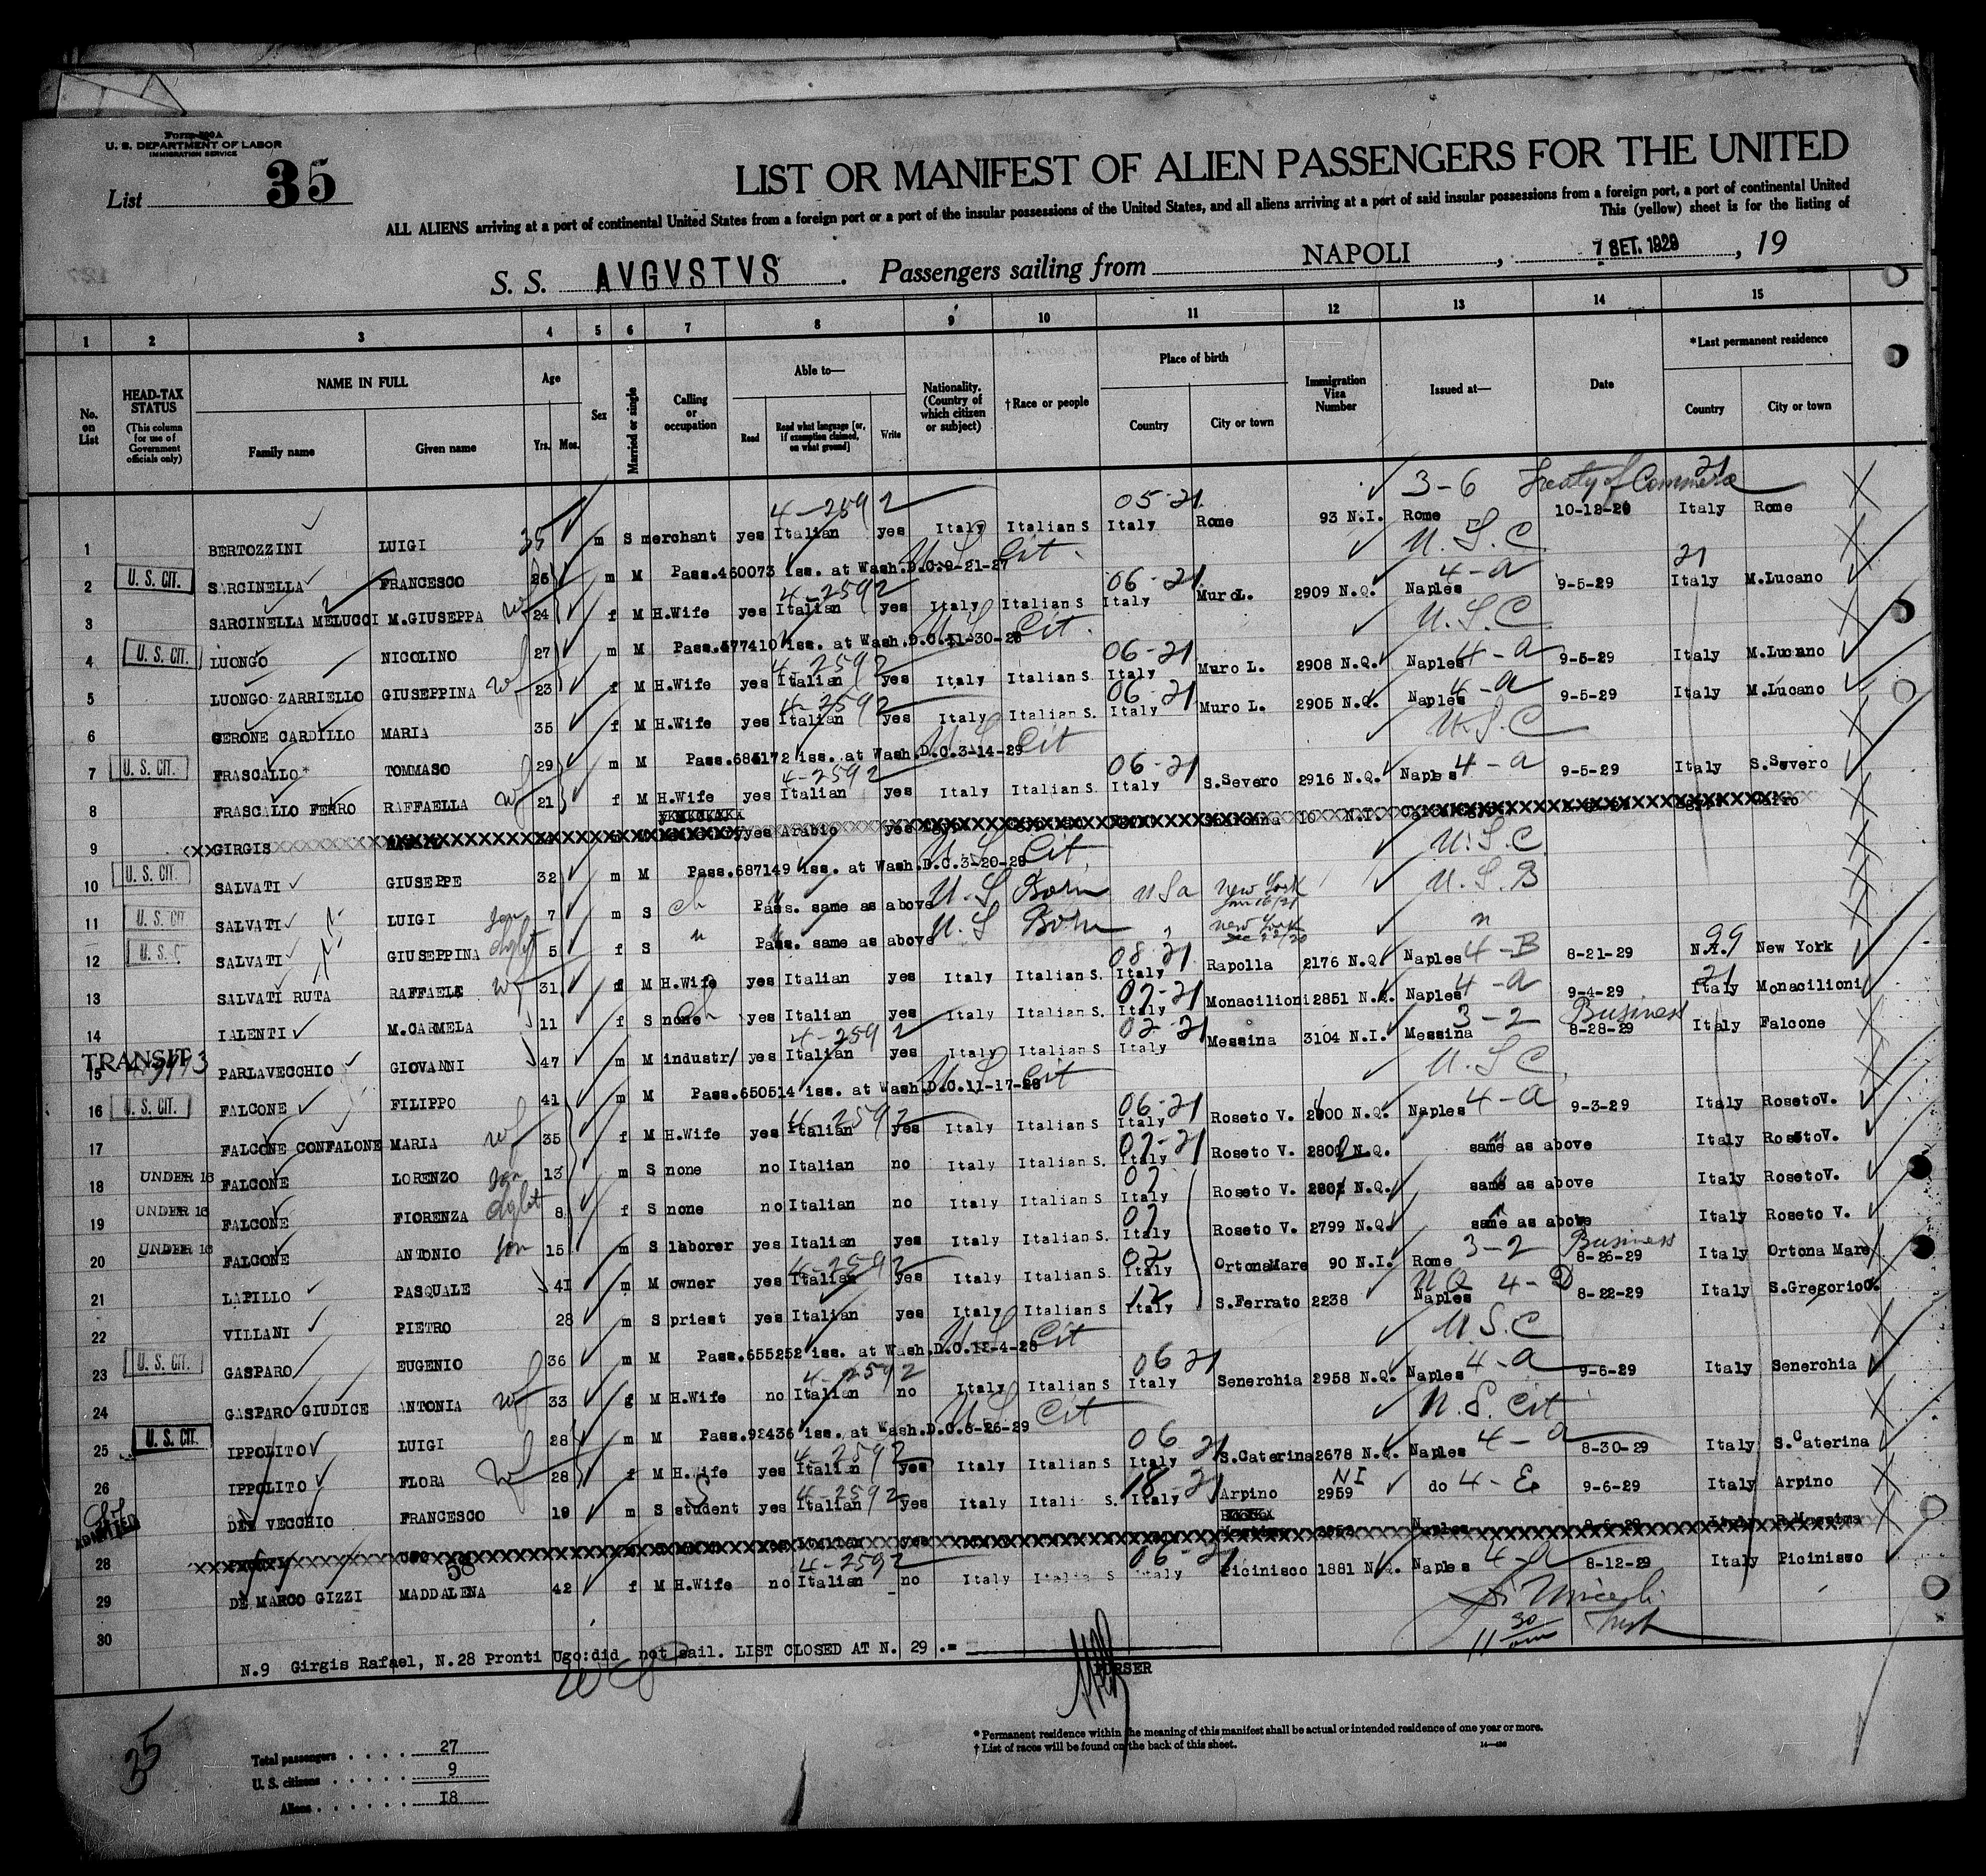 Form 500A
U. S. DEPARTMENT OF LABOR
IMMIGRATION SERVICE
List 35
LIST OR MANIFEST OF ALIEN PASSENGERS FOR THE UNITED
ALL ALIENS arriving at a port of continental United States from a foreign port or a port of the insular possessions of the United States, and all aliens arriving at a port of said insular possessions from a foreign port, a port of continental United
This (yellow) sheet is for the listing of
S. S. AVGVSTVS . Passengers sailing from NAPOLI , 7 SET. 1929 , 19
1 2 3 4 5 6 7 8 9 10 11 12 13 14 15
No. on List
HEAD-TAX STATUS (This column for use of Government officials only)
NAME IN FULL Family name Given name
Age Yrs. Mos.
Sex
Married or single
Calling or occupation
Able to— Read Read what language [or, if exemption claimed, on what ground] Write
Nationality. (Country of which citizen or subject)
†Race or people
Place of birth Country City or town
Immigration Visa Number
Issued at—
Date
*Last permanent residence Country City or town
4-2592 05-21 3-6 Treaty of Commerce 21
1 BERTOZZINI LUIGI 35 m S merchant yes Italian yes Italy Italian S Italy Rome 93 N.I. Rome Italy Rome
U.S. Cit. U.S.C.
2 U. S. CIT. SARCINELLA FRANCESCO 26 m M Pass.460073 iss. at Wash.D.C.9-21-27
4-2592 06-21 4-a 21
3 SARCINELLA MELUCCI M.GIUSEPPA wf 24 f M H.Wife yes Italian yes Italy Italian S Italy Muro L. 2909 N.Q. Naples 9-5-29 Italy M.Lucano
U.S. Cit. U.S.C
4 U. S. CIT. LUONGO NICOLINO 27 m M Pass.577410 iss. at Wash.D.C.11-30-28
4-2592 06-21 4-a
5 LUONGO ZARRIELLO GIUSEPPINA wf 23 f M H.Wife yes Italian yes Italy Italian S. Italy Muro L. 2908 N.Q. Naples 9-5-29 Italy M.Lucano
4-2592 06-21 4-a
6 CERONE CARDILLO MARIA 35 f M H.Wife yes Italian yes Italy Italian S. Italy Muro L. 2905 N.Q. Naples 9-5-29 Italy M.Lucano
U.S. Cit U.S.C
7 U. S. CIT. FRASCALLO* TOMMASO 29 m M Pass.685172 iss. at Wash.D.C.3-14-29
4-2592 06-21 4-a
8 FRASCALLO FERRO RAFFAELLA wf 21 f M H.Wife yes Italian yes Italy Italian S. Italy S.Severo 2916 N.Q. Naples 9-5-29 Italy S.Severo
9 GIRGIS yes Arabic yes
U.S. Cit. U.S.C.
10 U. S. CIT. SALVATI GIUSEPPE 32 m M Pass.687149 iss. at Wash.D.C.3-20-29
11 U. S. CIT SALVATI LUIGI son 7 m S ch Pass. same as above U.S Born USa New York U.S.B
12 SALVATI GIUSEPPINA dght 5 f S " Pass. same as above U.S Born " New York "
08-21 4-B 99
13 SALVATI RUTA RAFFAELE wf 31 f M H.Wife yes Italian yes Italy Italian S. Italy Rapolla 2176 N.Q. Naples 8-21-29 N.A. New York
07-21 4-a 21
14 IALENTI M.CARMELA 11 f S none ch yes Italian yes Italy Italian S. Italy Monacilioni 2851 N.Q. Naples 9-4-29 Italy Monacilioni
4-2592 02-21 3-2 Business
TRANSIT
15 PARLAVECCHIO GIOVANNI 47 m M industr/ yes Italian yes Italy Italian S Italy Messina 3104 N.I. Messina 8-28-29 Italy Falcone
U.S Cit U.S.C.
16 U. S. CIT. FALCONE FILIPPO 41 m M Pass.650514 iss. at Wash.D.C.11-17-28
4-2592 06-21 4-a
17 FALCONE CONFALONE MARIA wf 35 f M H.Wife yes Italian yes Italy Italian S Italy Roseto V. 2800 N.Q. Naples 9-3-29 Italy RosetoV.
07-21
18 UNDER 16 FALCONE LORENZO son 13 m S none no Italian no Italy Italian S. Italy Roseto V. N.Q. same as above Italy RosetoV.
07
19 UNDER 16 FALCONE FIORENZA dght 8 f S none no Italian no Italy Italian S. Italy Roseto V. N.Q. same as above Italy RosetoV.
07
20 UNDER 16 FALCONE ANTONIO son 15 m S laborer yes Italian yes Italy Italian S. Italy Roseto V. 2799 N.Q. same as above Italy Roseto V.
4-2592 02 3-2 Business
21 LAPILLO PASQUALE 41 m M owner yes Italian yes Italy Italian S. Italy OrtonaMare 90 N.I. Rome 8-26-29 Italy Ortona Mare
12 NQ 4-D
22 VILLANI PIETRO 28 m S priest yes Italian yes Italy Italian S Italy S.Ferrato 2238 Naples 8-22-29 Italy S.Gregorio
U.S Cit U.S.C
23 U. S. CIT. GASPARO EUGENIO 36 m M Pass.655252 iss. at Wash.D.C.12-4-28
4-2592 06 21 4-a
24 GASPARO GIUDICE ANTONIA wf 33 f M H.Wife no Italian no Italy Italian S Italy Senerchia 2958 N.Q. Naples 9-6-29 Italy Senerchia
U.S. Cit U.S. Cit
25 U. S. CIT. IPPOLITO LUIGI 28 m M Pass.92436 iss. at Wash.D.C.6-26-29
4-2592 06 21 4-a
26 IPPOLITO FLORA wf 28 f M H.Wife yes Italian yes Italy Italian S Italy S.Caterina 2678 N.Q. Naples 8-30-29 Italy S.Caterina
4-2592 18-21 NI 4-E
ADMITTED DEL VECCHIO FRANCESCO 19 m S student yes Italian yes Italy Itali S. Italy Arpino 2959 do 9-6-29 Italy Arpino
28
58 4-2592 06-21 4-a
29 DE MARCO GIZZI MADDALENA 42 f M H.Wife no Italian no Italy Italia S Italy Picinisco 1881 N.Q. Naples 8-12-29 Italy Picinisco
30
N.9 Girgis Rafael, N.28 Pronti Ugo:did not sail. LIST CLOSED AT N. 29 .=
PURSER
35
* Permanent residence within the meaning of this manifest shall be actual or intended residence of one year or more.
† List of races will be found on the back of this sheet.
Total passengers . . . . 27
U. S. citizens . . . . . . 9
Aliens . . . . . . 18